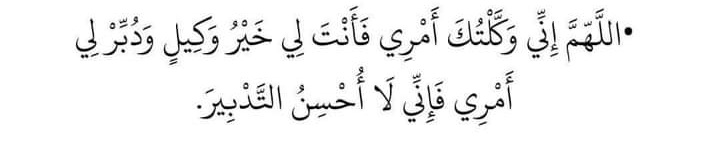 •اللَّهُمَّ إِنِّي وَكَّلْتُكَ أَمْرِي فَأَنْتَ لِي خَيْرُ وَكِيلٍ وَدُبِّرْ لِي
أَمْرِي فَإِنِّي لَا أُحْسِنُ التَّدْبِيرَ.